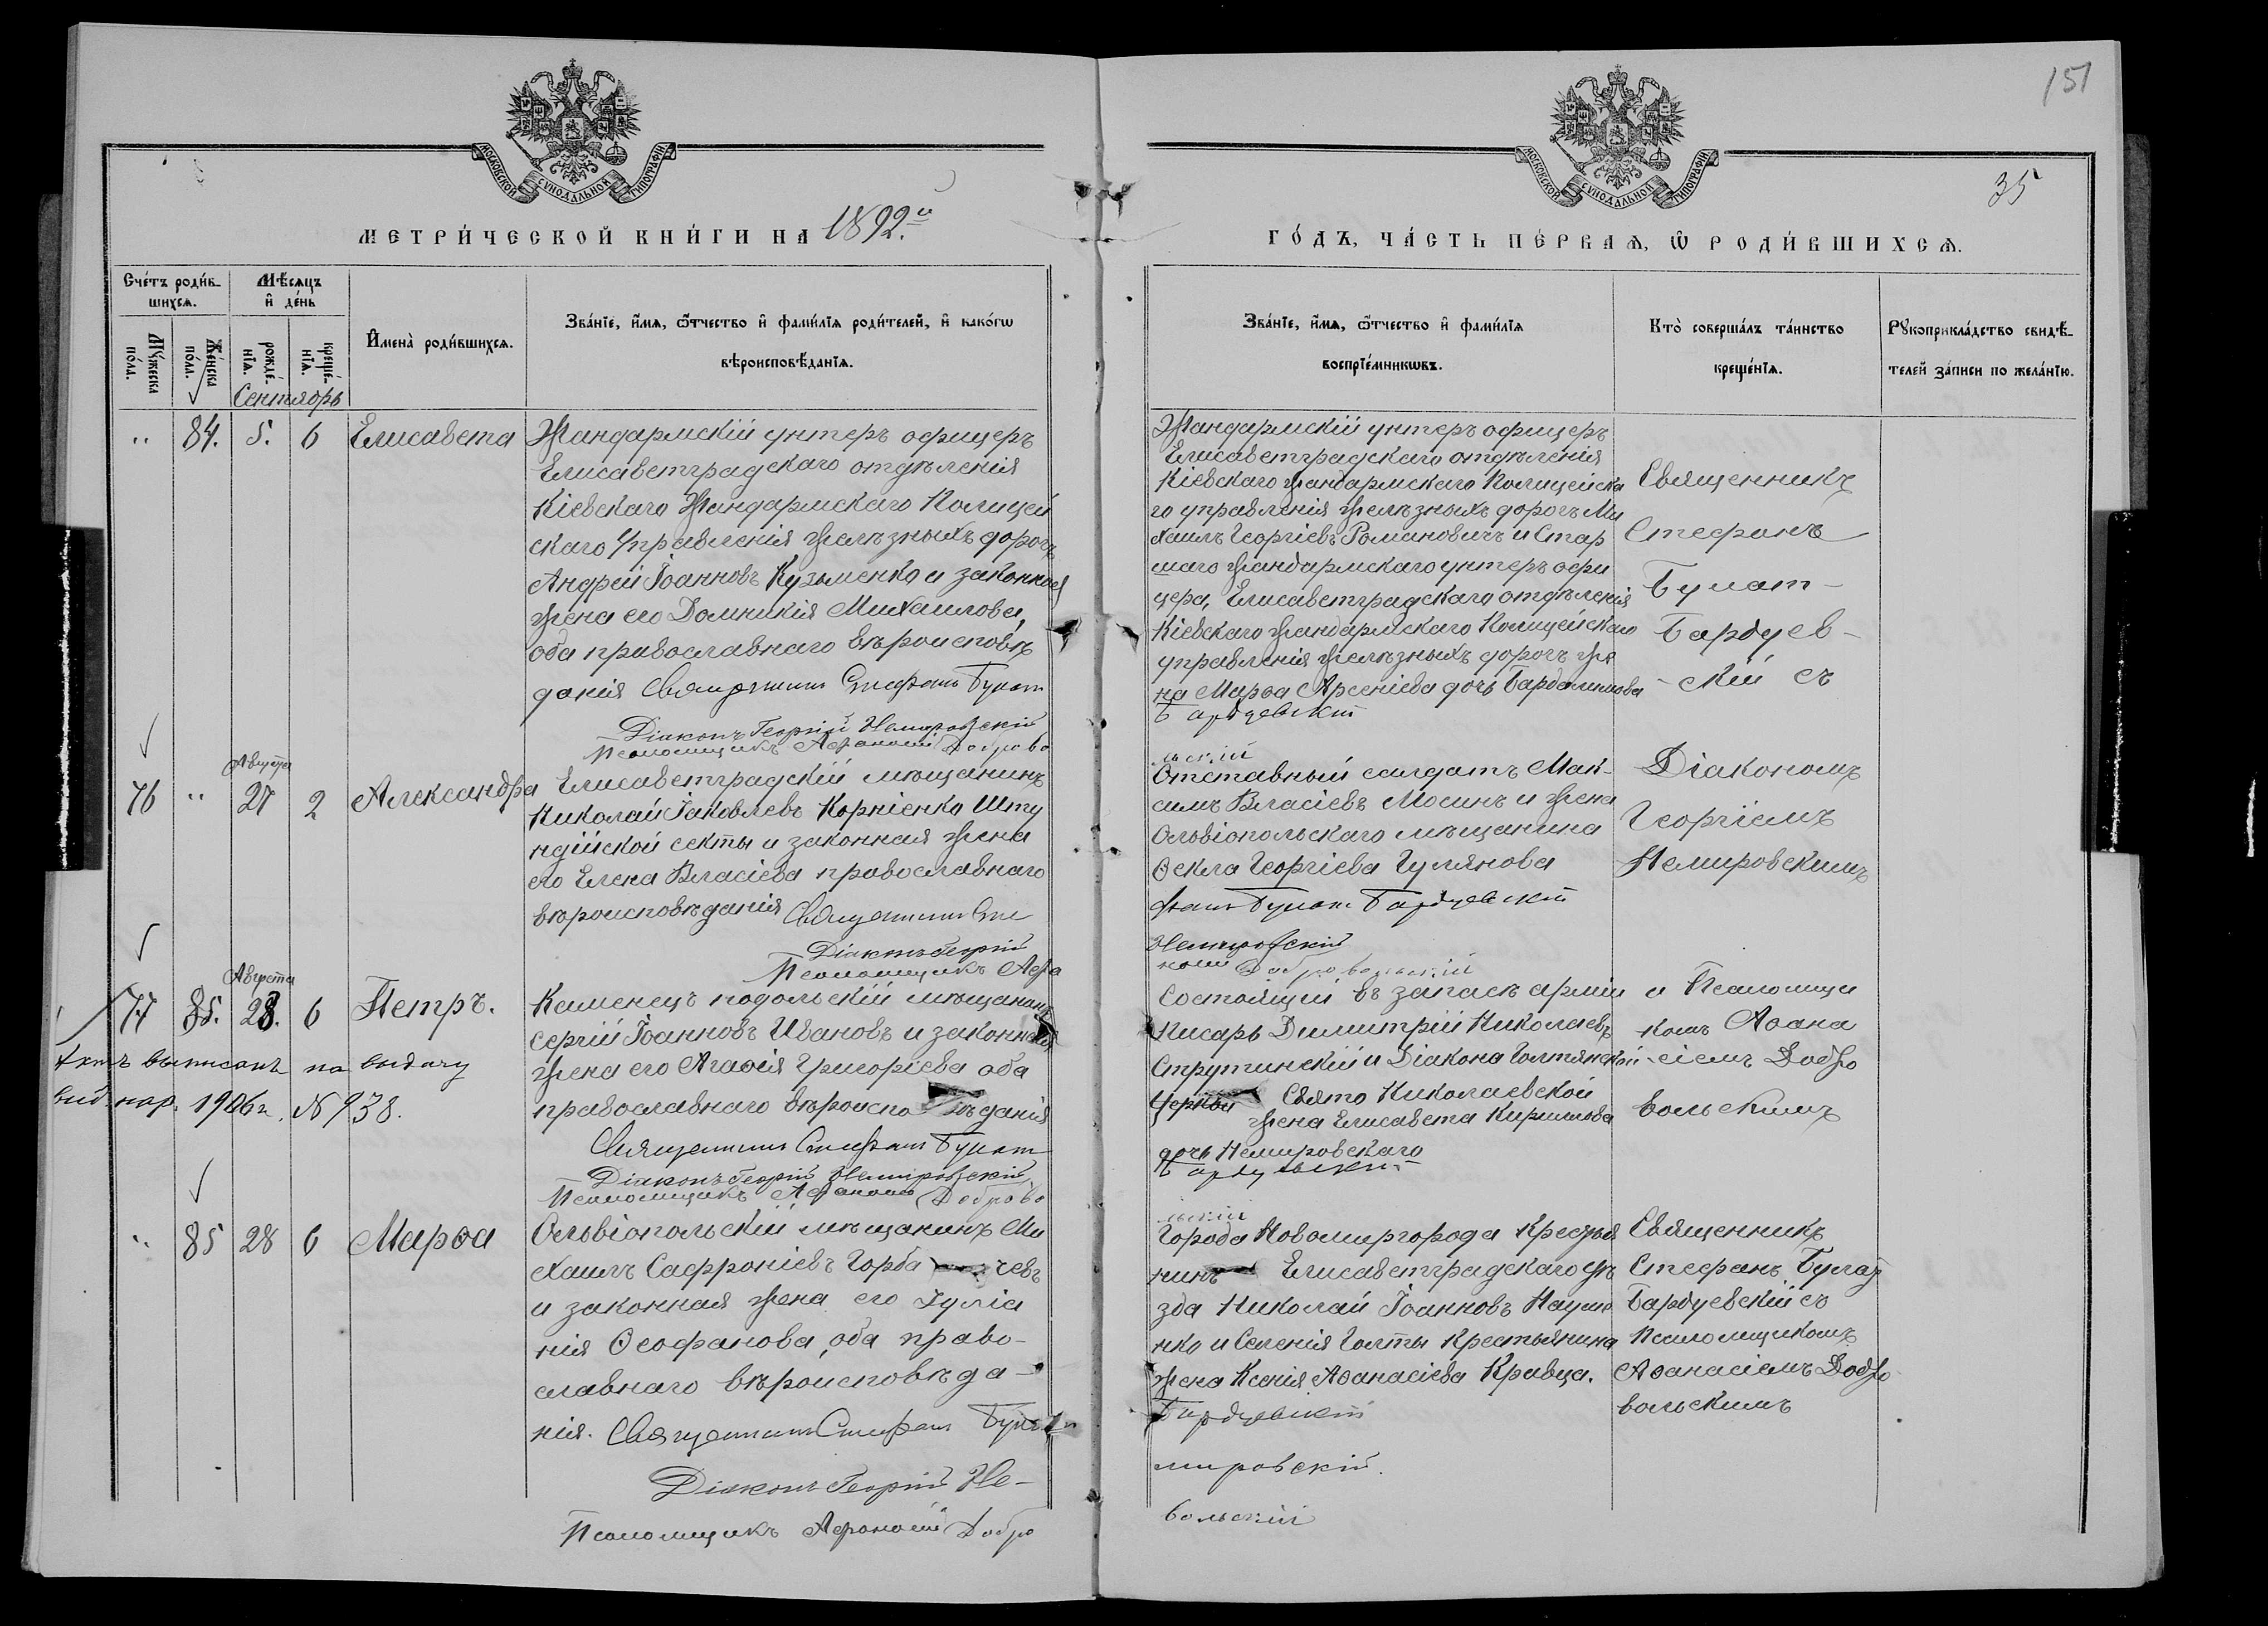 151
35
МОСКОВСКОЙ СѴНОДАЛЬНОЙ ТИПОГРАФІИ
МОСКОВСКОЙ СѴНОДАЛЬНОЙ ТИПОГРАФІИ
МЕТРИ́ЧЕСКОЙ КНИ́ГИ НА 1892.й
ГО́ДЪ, ЧА́СТЬ ПЕ́РВАѦ, Ѿ РОДИ́ВШИХСѦ.
Сче́тъ роди́в-
шихсѧ.
Мѣ́сѧцъ
и҆ де́нь
Мꙋ́жеска
по́ла.
Же́нска
по́ла.
рожде́-
нїѧ.
креще́-
нїѧ.
И҆мена̀ роди́вшихсѧ.
Зва́нїе, и҆́мѧ, ѻ҆́тчество и҆ фами́лїѧ роди́телей, и҆ како́гѡ
вѣроисповѣ́данїѧ.
Зва́нїе, и҆́мѧ, ѻ҆́тчество и҆ фами́лїѧ
воспрїе́мникѡвъ.
Кто̀ соверша́лъ та́инство
креще́нїѧ.
Рꙋкоприкла́дство свидѣ́-
телей за́писи по жела́нїю.
Сентябрь
" 84. 5. 6 Елисавета
Жандармскій унтеръ офицеръ
Елисаветградскаго отдѣленія
Кіевскаго Жандармскаго Полицей
скаго Управленія желѣзныхъ дорогъ
Андрей Іоанновъ Кузьменко и законная
жена его Домникія Михаилова,
оба православнаго вѣроисповѣ
данія Священникъ Стефанъ Булат
Діаконъ Георгій Немировскій
Псаломщикъ Афанасій Доброво
Жандармскій унтеръ офицеръ
Елисаветградскаго отдѣленія
Кіевскаго жандармскаго Полицейска
го управленія желѣзныхъ дорогъ Ми
хаилъ Георгіевъ Романовичъ и Стар
шаго жандармскаго унтеръ офи
цера, Елисаветградскаго отдѣленія
Кіевскаго жандармскаго Полицейскаго
управленія желѣзныхъ дорогъ же
на Марѳа Арсеніева дочь
Бардуевскій
льскій
Священникъ
Стефанъ
Булат-
Бардуев-
-скій съ
Августа
76 " 27 2 Александра
Елисаветградскій мѣщанинъ
Николай Іаковлевъ Корніенко Шту
ндійской секты и законная жена
его Елена Власіева православнаго
вѣроисповѣданія Священникъ Сте
Діаконъ Георгій
Псаломщикъ Афа
Отставный солдатъ Мак-
симъ Власіевъ Мосинъ и жена
Ольвіопольскаго мѣщанина
Ѳекла Георгіева Гулянова
фанъ Булат Бардуевскій
Немировскій
насій Добровольскій
Діакономъ
Георгіемъ
Немировскимъ
Августа
77 85. 28. 6 Петръ.
Актъ выписанъ на выдачу
1906 г. № 938.
Каменецъ подольскій мѣщанинъ
Сергій Іоанновъ Ивановъ и законная
жена его Агафія Григоріева оба
православнаго вѣроисповѣданія
Священникъ Стефанъ Булат
Діаконъ Георгій Немировскій
Псаломщикъ Афанасій Доброво
Состоящій въ запасѣ арміи
писарь Димитрій Николаевъ
Струтинскій и Діакона Голтянской
Церкви Свято Николаевской
жена Елисавета Кириллова
дочь Немировскаго
Бардуевскій
льскій
и Псаломщи
комъ Аѳана
-сіемъ Добро
вольскимъ
" 85 28 6 Марѳа
Ольвіопольскій мѣщанинъ Ми
хаилъ Сафроніевъ Горба чевъ
и законная жена его Іуліа
нія Ѳеофанова, оба право-
славнаго вѣроисповѣда-
нія. Священникъ Стефанъ Булат
Діаконъ Георгій Не-
Псаломщикъ Афанасій Добро
Города Новомиргорода Крестья
нинъ Елисаветградскаго уѣ
зда Николай Іоанновъ Науме
нко и Селенія Голты Крестьянина
жена Ксенія Аѳанасіева Кравца.
Бардуевскій
мировскій.
вольскій
Священникъ
Стефанъ Булат
Бардуевскій съ
Псаломщикомъ
Аѳанасіемъ Добро
вольскимъ